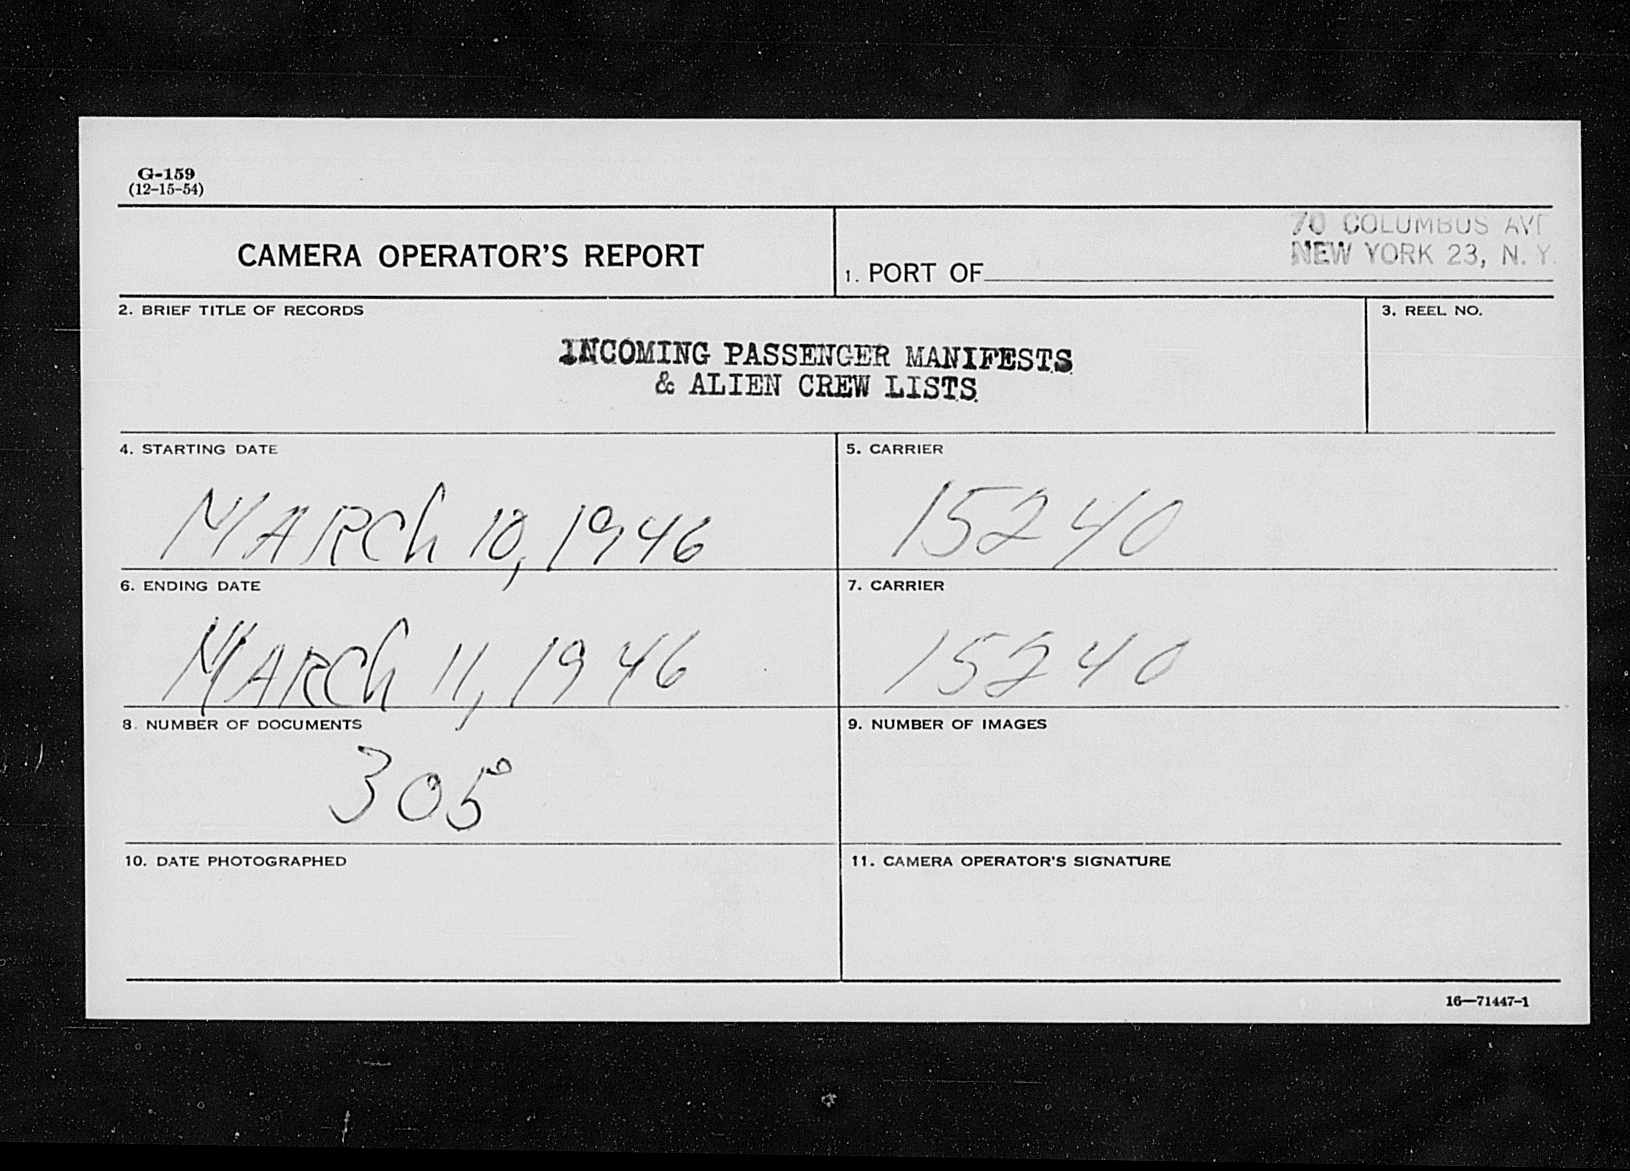 G-159
(12-15-54)
CAMERA OPERATOR'S REPORT
70 COLUMBUS AVE
NEW YORK 23, N. Y.
1. PORT OF
2. BRIEF TITLE OF RECORDS
3. REEL NO.
INCOMING PASSENGER MANIFESTS
& ALIEN CREW LISTS
4. STARTING DATE
5. CARRIER
MARCh 10, 1946
15240
6. ENDING DATE
7. CARRIER
MARCh 11, 1946
15240
8. NUMBER OF DOCUMENTS
9. NUMBER OF IMAGES
305
10. DATE PHOTOGRAPHED
11. CAMERA OPERATOR'S SIGNATURE
16—71447-1